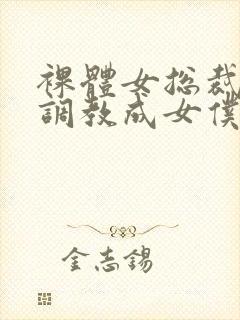 裸體女総裁
調教成女僕
金志錫